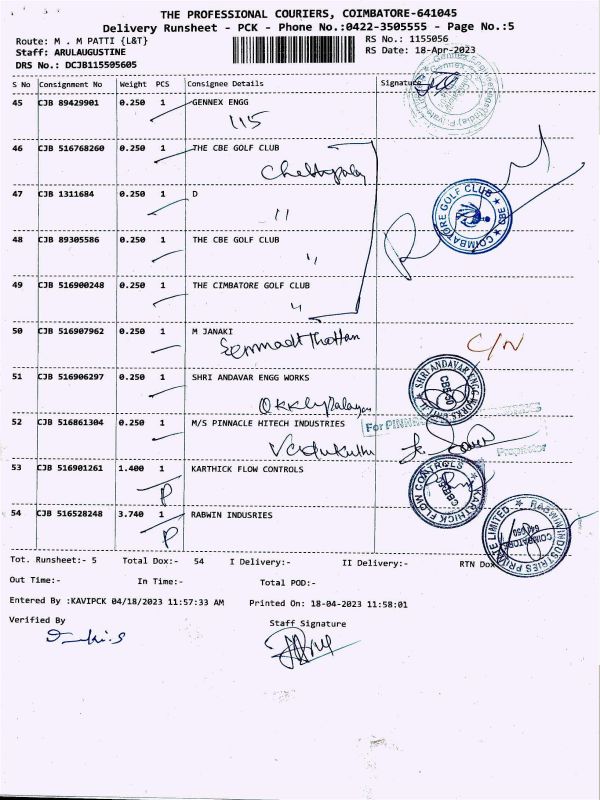 THE PROFESSIONAL COURIERS, COIMBATORE-641045
Delivery Runsheet - PCK - Phone No.:0422-3505555 - Page No.:5
Route: M . M PATTI {L&T} RS No.: 1155056
Staff: ARULAUGUSTINE RS Date: 18-Apr-2023
DRS No.: DCJB115505605
S No Consignment No Weight PCS Consignee Details Signature
45 CJB 89429901 0.250 1 GENNEX ENGG
115
46 CJB 516768260 0.250 1 THE CBE GOLF CLUB
47 CJB 1311684 0.250 1 D
11
COIMBATORE GOLF CLUB ★ CBE ★
48 CJB 89305586 0.250 1 THE CBE GOLF CLUB
"
49 CJB 516900248 0.250 1 THE CIMBATORE GOLF CLUB
"
50 CJB 516907962 0.250 1 M JANAKI
C/N
51 CJB 516906297 0.250 1 SHRI ANDAVAR ENGG WORKS
SHRI ANDAVAR ENGG WORKS
52 CJB 516861304 0.250 1 M/S PINNACLE HITECH INDUSTRIES
For PINN
Proprietor
53 CJB 516901261 1.400 1 KARTHICK FLOW CONTROLS
P
KARTHICK FLOW CONTROLS
54 CJB 516528248 3.740 1 RABWIN INDUSRIES
P
RABWIN INDUSTRIES PRIVATE LIMITED
COIMBATORE
Tot. Runsheet:- 5 Total Dox:- 54 I Delivery:- II Delivery:- RTN Dox
Out Time:- In Time:- Total POD:-
Entered By :KAVIPCK 04/18/2023 11:57:33 AM Printed On: 18-04-2023 11:58:01
Verified By Staff Signature